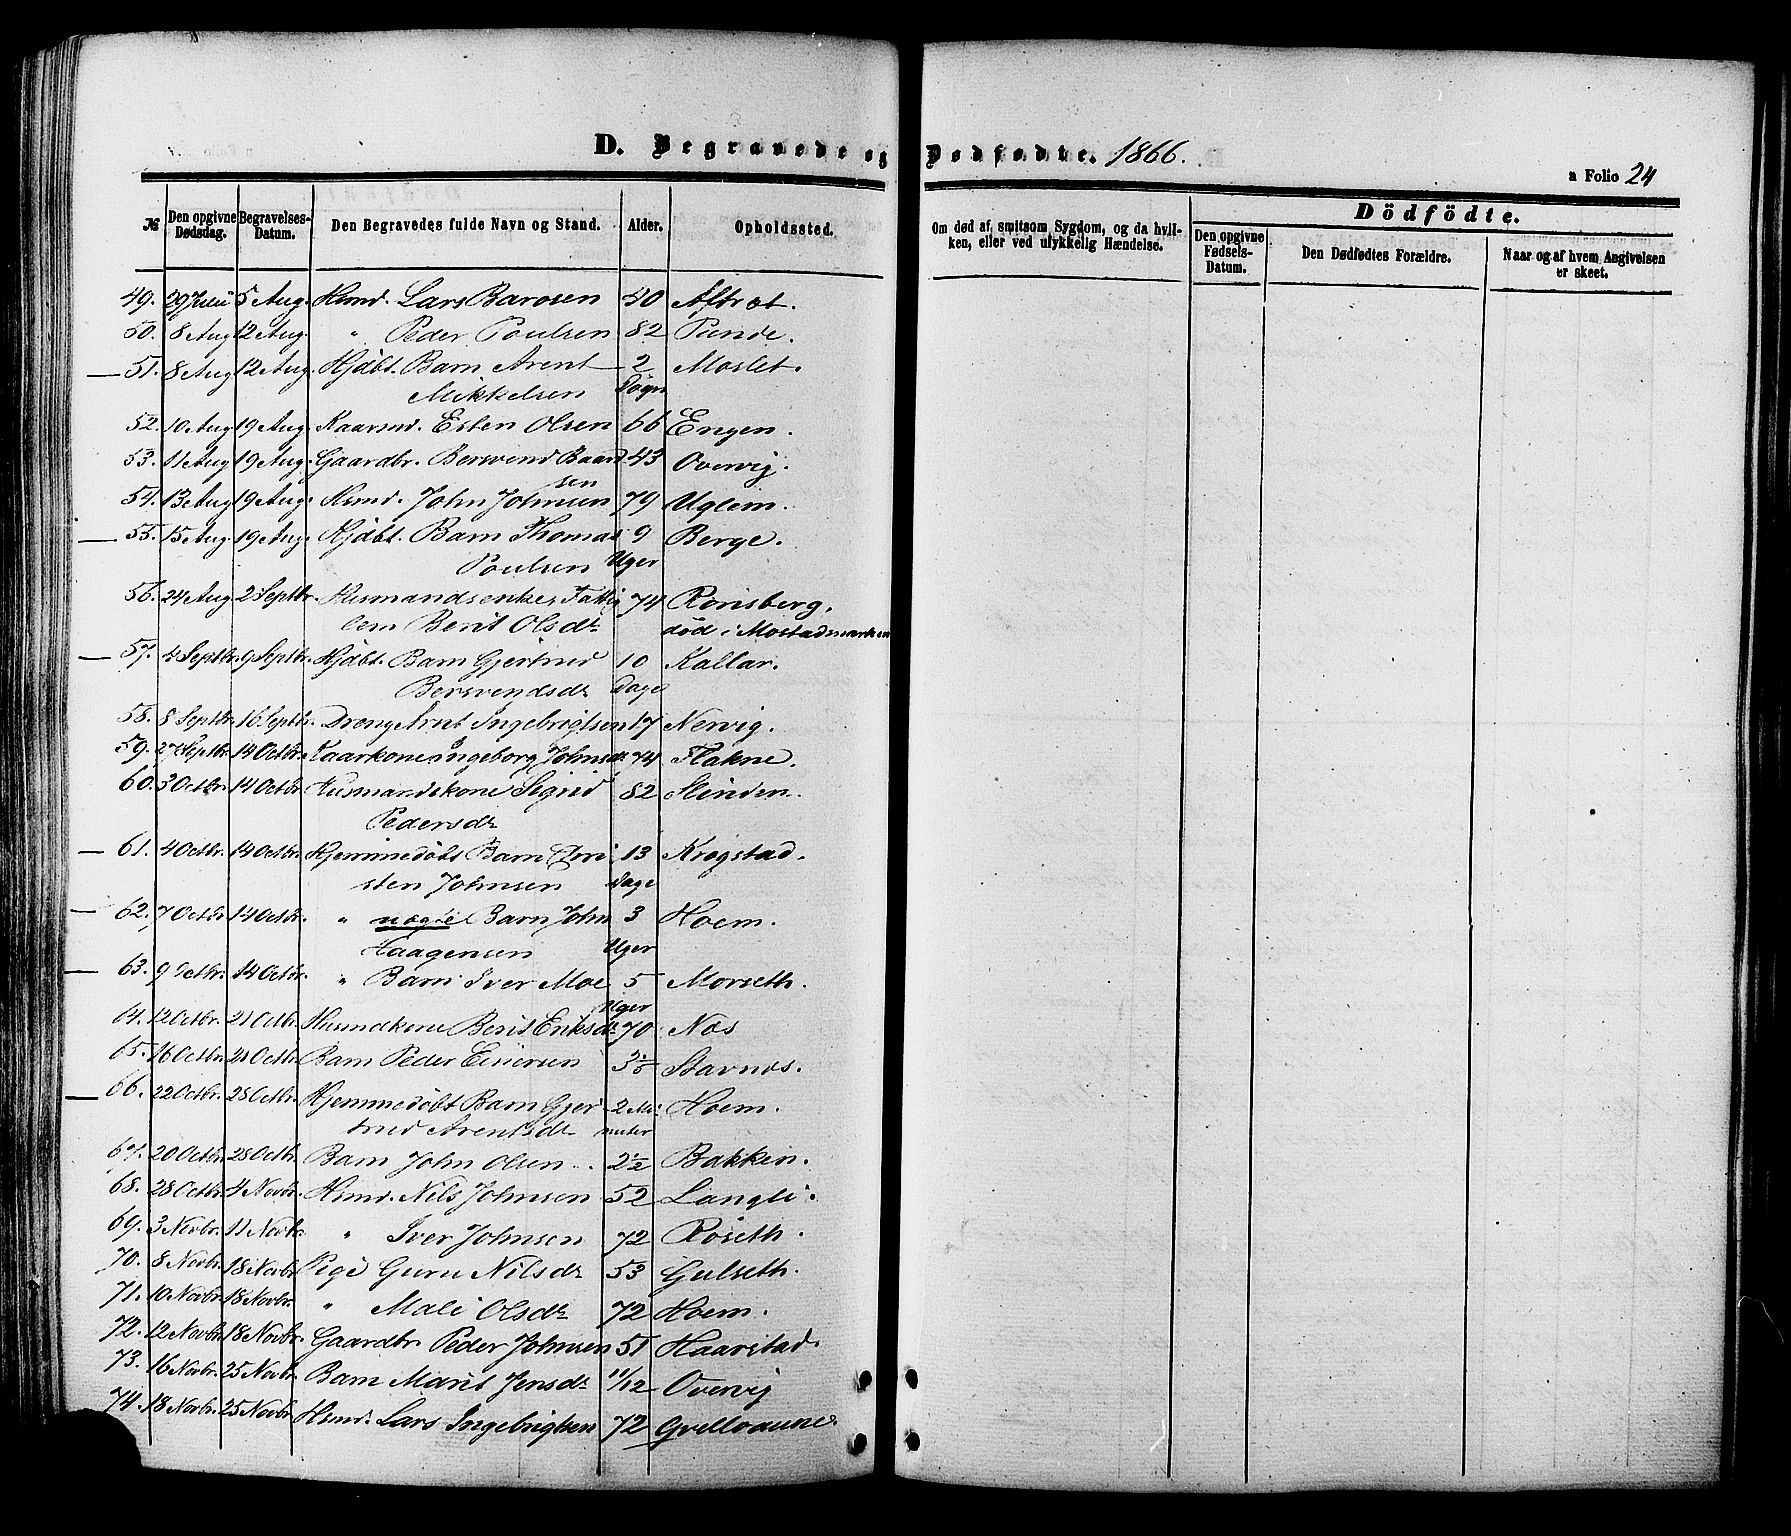 D. Begravede og Dødfødte. 1866.
a Folio 24
№ Den opgivne Dødsdag. Begravelses-Datum. Den Begravedes fulde Navn og Stand. Alder. Opholdssted. Om død af smitsom Sygdom, og da hvilken, eller ved ulykkelig Hændelse. Dödfödte.
Den opgivne Fødsels-Datum. Den Dødfødtes Forældre. Naar og af hvem Angivelsen er skeet.
49. 29 Juli 5 Aug. Hsmd. Lars Barosen 40 Aftræt.
50. 8 Aug 12 Aug. " Peder Poulsen 82 Punde.
51. 8 Aug 12 Aug. Hjdbt. Barn Arent 2 Moslet.
Mikkelsen Døgn
52. 10 Aug 19 Aug. Kaarmd. Esten Olsen 66 Engen.
53. 11 Aug 19 Aug. Gaardbr. Bersvend Baard 43 Overvig.
sen
54. 13 Aug 19 Aug. Hsmd. John Johnsen 79 Uglem.
55. 15 Aug 19 Aug. Hjdbt. Barn Thomas 9 Berge.
Poulsen Uger
56. 24 Aug 2 Septbr. Husmandsenke, Fattig 74 Rønsberg,
lem Berit Olsdr død i Mostadmarken
57. 4 Septbr. 9 Septbr. Hjdbt. Barn Gjertrud 10 Kallar.
Bersvendsdr Dage
58. 8 Septbr. 16 Septbr. Dreng Arnt Ingebrigtsen 17 Nervig.
59. 27 Septbr. 14 Octbr. Kaarkone Ingeborg Johnsdr. 74 Flakne.
60. 3 Octbr. 14 Octbr. Husmandskone Sigrid 82 Slinden.
Pedersdr
61. 4 Octbr. 14 Octbr. Hjemmedøbt Barn Chri 13 Krogstad.
sten Johnsen Dage
62. 7 Octbr. 14 Octbr. " uægte Barn John 3 Hoem.
Haagensen Uger
63. 9 Octbr. 14 Octbr. " Barn Iver Moe 5 Morseth.
Uger
64. 12 Octbr. 21 Octbr. Husmdkone Berit Eriksdr 70 Næs
65. 16 Octbr. 21 Octbr. Barn Peder Einersen Stavnæs.
66. 22 Octbr. 28 Octbr. Hjemmedøbt Barn Gjer 2 Mi- Hoem.
trud Arentsdr nuter
67. 20 Octbr. 28 Octbr. Barn John Olsen 2½ Bakken.
68. 28 Octbr. 4 Novbr. Hsmd. Nils Johnsen 52 Langli.
69. 3 Novbr. 11 Novbr. " Iver Johnsen 72 Røseth.
70. 8 Novbr. 18 Novbr. Pige Guru Nilsdr 53 Gulseth.
71. 10 Novbr. 18 Novbr. " Mali Olsdr 72 Hoem.
72. 12 Novbr. 18 Novbr. Gaardbr. Peder Johnsen 51 Haarstad.
73. 16 Novbr. 25 Novbr. Barn Marit Jensdr 11/12 Overvig
74. 18 Novbr. 25 Novbr. Hsmd. Lars Ingebrigtsen 72 Grelloaune.